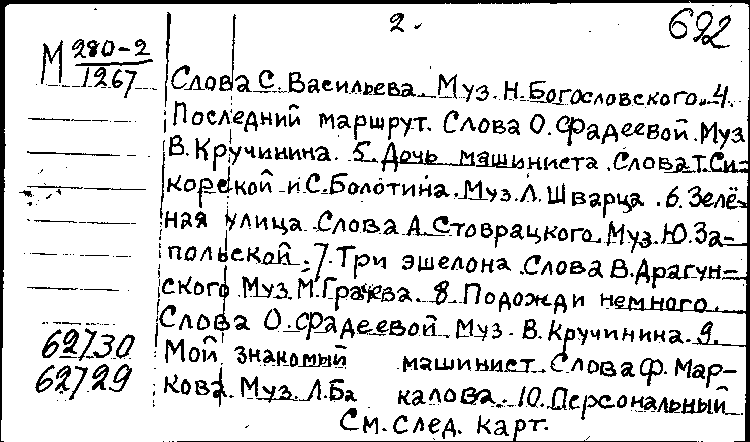 2.
692
М 280-2
1267
Слова С. Васильева. Муз. Н. Богословского. 4.
Последний маршрут. Слова О. Фадеевой. Муз
В. Кручинина. 5. Дочь машиниста. Слова Т. Си-
корской и С. Болотина. Муз. Л. Шварца. 6. Зелё-
ная улица. Слова А. Стоврацкого. Муз. Ю. За-
польской. 7. Три эшелона. Слова В. Драгун-
ского. Муз. М. Грачева. 8. Подожди немного.
Слова О. Фадеевой. Муз. В. Кручинина. 9.
62730 Мой знакомый машинист. Слова Ф. Мар-
62729 кова. Муз. Л. Ба калова. 10. Персональный
См. след. карт.